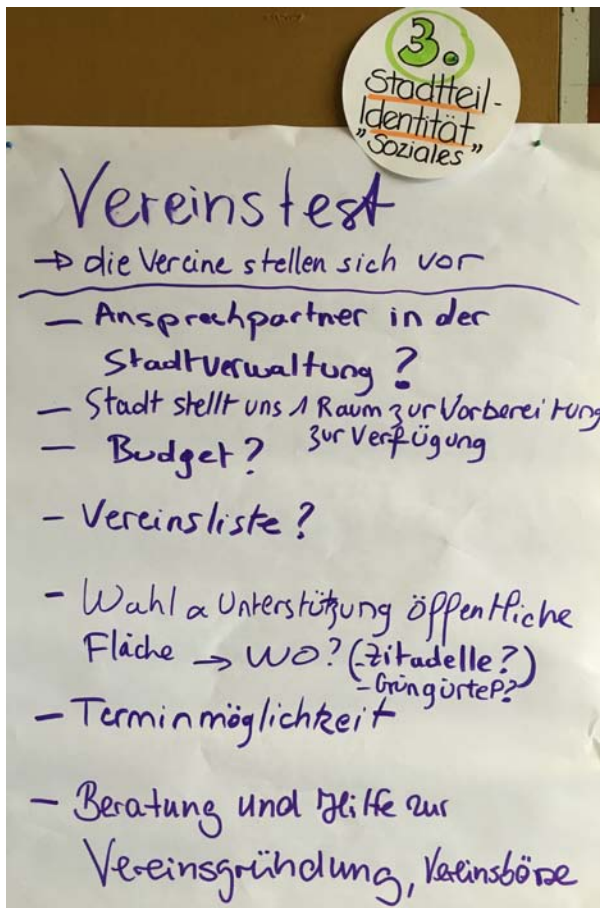 3.
Stadtteil-
Identität
"Soziales"
Vereinstest
→ die Vereine stellen sich vor
— Ansprechpartner in der
Stadtverwaltung?
— Stadt stellt uns 1 Raum zur Vorbereitung
zur Verfügung
— Budget?
- Vereinsliste?
- Wahl & Unterstützung öffentliche
Fläche → WO? (-Zitadelle?)
-Grüngürtel?
- Terminmöglichkeit
- Beratung und Hilfe zur
Vereinsgründung, Vereinsbörse